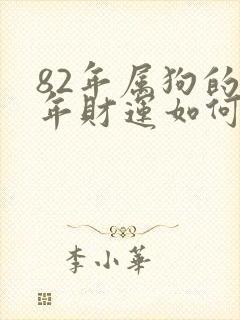 82年属狗的
年财运如何
李小華